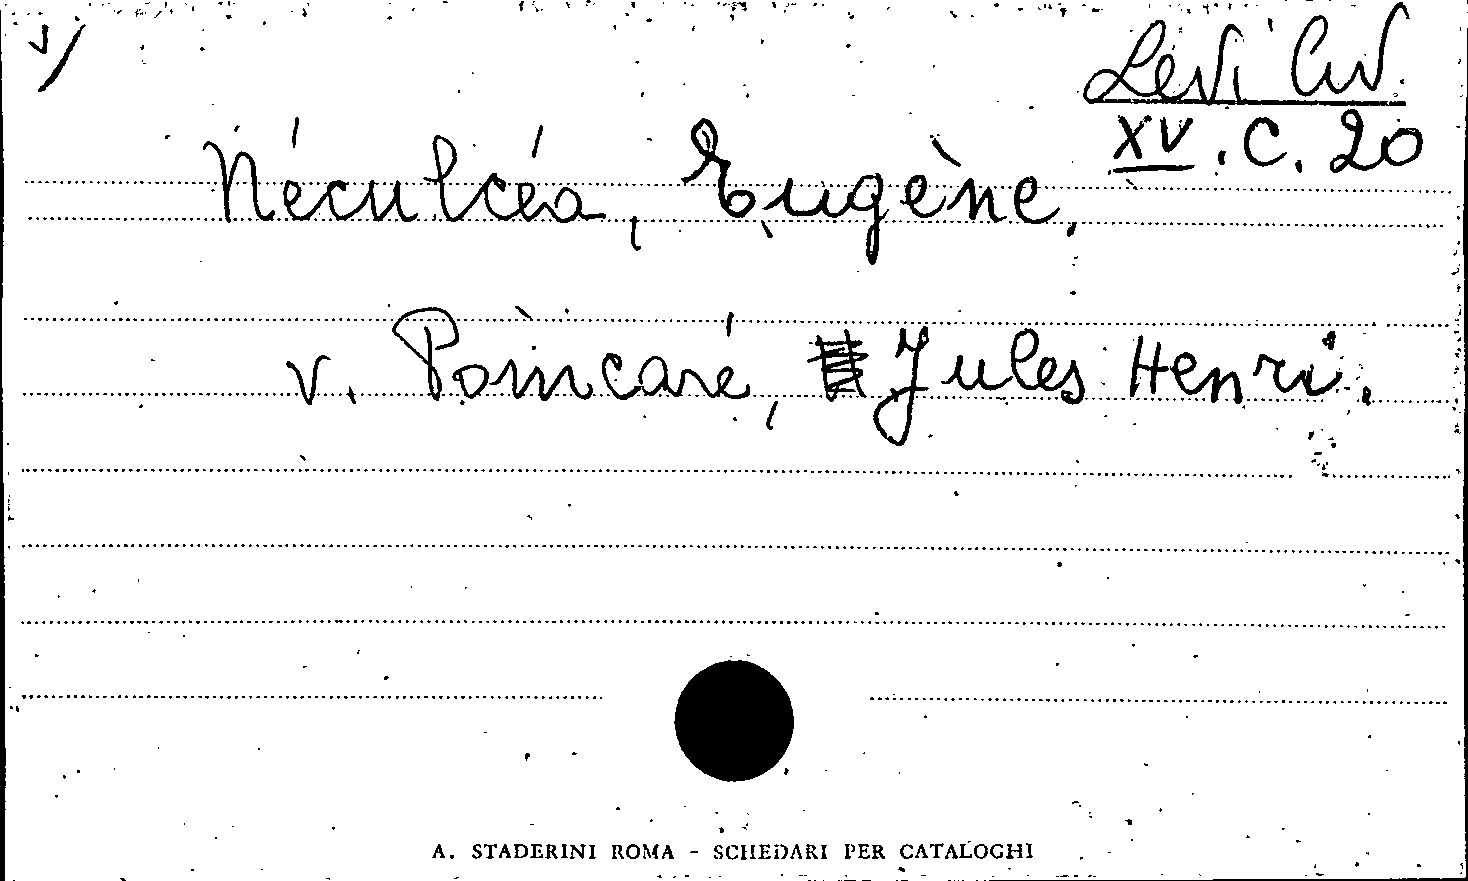 Levi Civ.
XV. C. 20
Néculcéa, Eugène.
v. Poincaré, Jules Henri.
A. STADERINI ROMA - SCHEDARI PER CATALOGHI